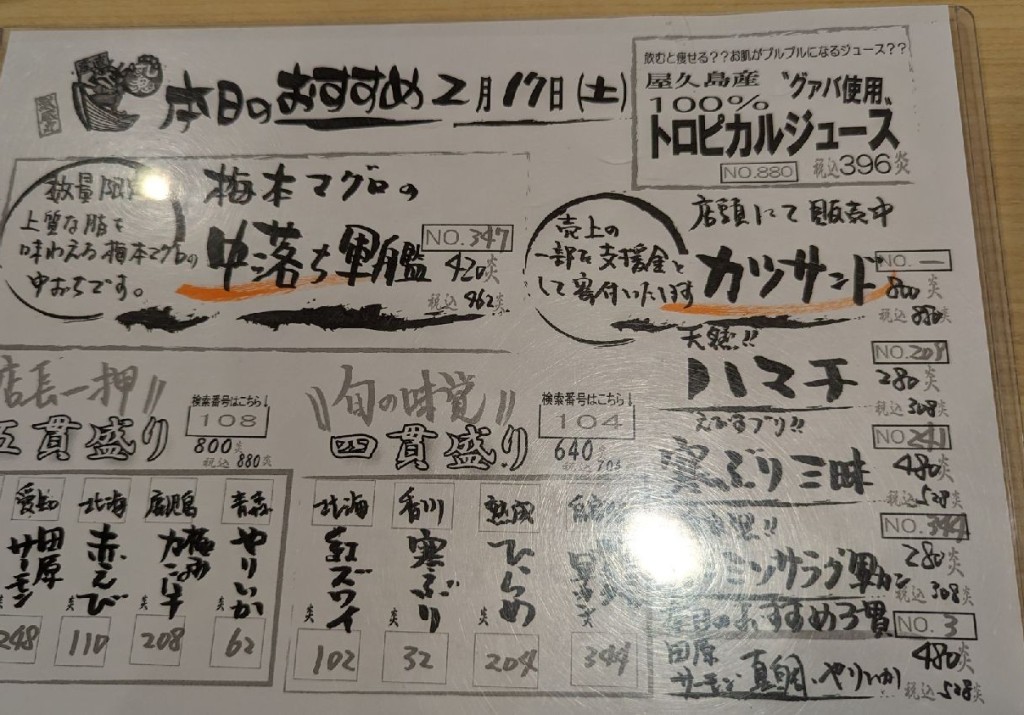 本日のおすすめ 2月17日(土)
飲むと痩せる??お肌がプルプルになるジュース??
屋久島産 "グァバ使用、
100%
トロピカルジュース
NO.880 税込396炎
数量限定
上質な脂を
味わえる梅本マグロの
中おちです。
梅本マグロの
中落ち軍艦
NO.347
420炎
税込462炎
売上の
一部を支援金と
して寄付いたします
店頭にて販売中
カツサンド
NO.一
800炎
税込880炎
天然!!
ハマチ
NO.209
280炎
税込308炎
えびすブリ!!
寒ぶり三昧
NO.241
480炎
税込528炎
NO.344
ミンサラダ軍カン
280炎
税込308炎
本日のおすすめ3貫
NO.3
田原
サーモン、真鯛、やりいか
480炎
税込528炎
店長一押!!
五貫盛り
検索番号はこちら!
108
800炎
税込880炎
愛知
田原
サーモン
248
北海
赤えび
炎
110
鹿児島
炎
208
青森
やりいか
炎
62
旬の味覚!!
四貫盛り
検索番号はこちら!
104
640炎
税込704
北海
紅ズワイ
炎
102
香川
寒ぶり
炎
32
熟成
ひらめ
炎
204
炎
344